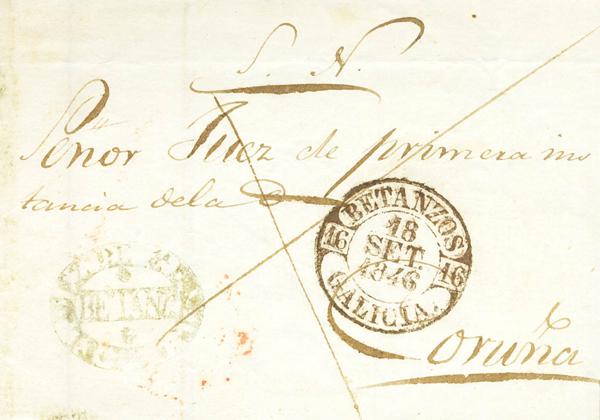 S. N.
Señor Juez de primera ins
tancia dela
BETANZOS
18
SET
1846
16
16
GALICIA.
BETANZ
Coruña